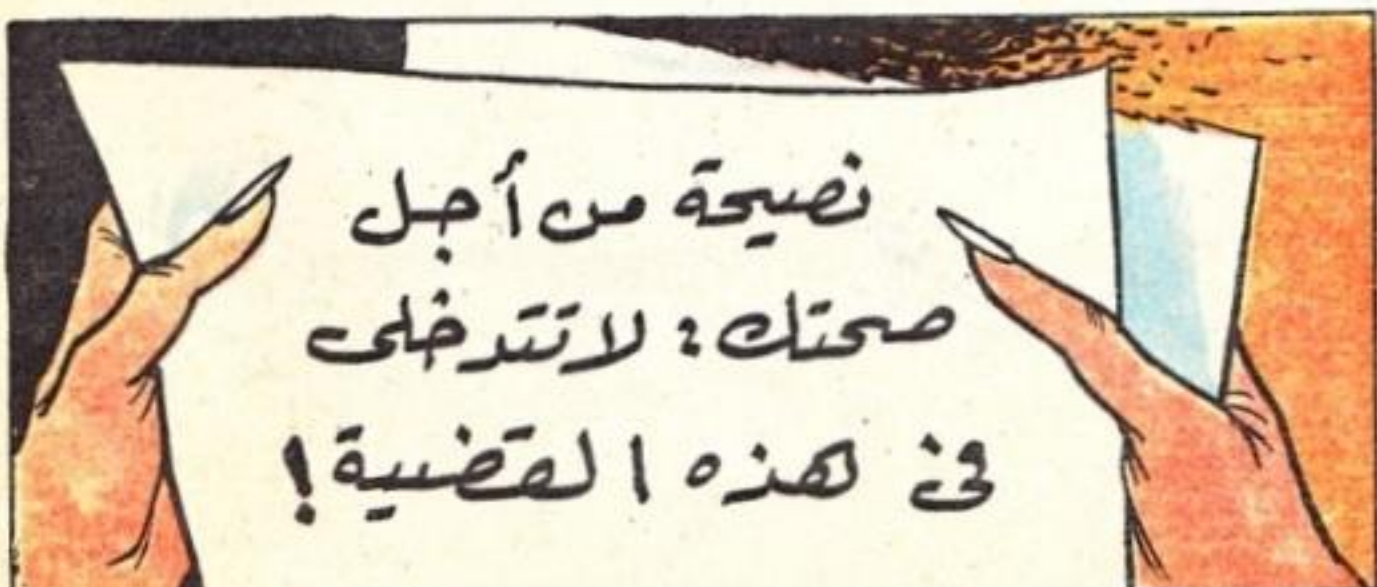 نصيحة من أجل
صحتك : لا تتدخلى
فى هذه القضية !